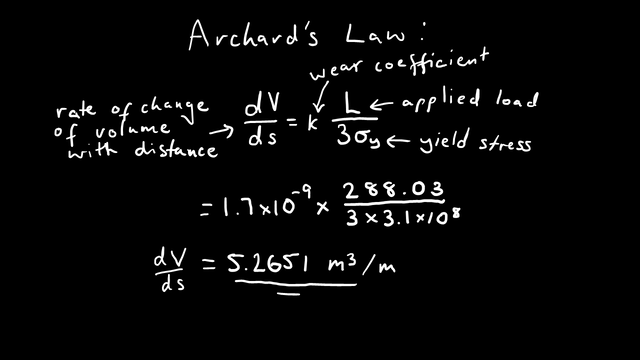 Archard's Law:
wear coefficient
rate of change of volume with distance → dV/ds = k L/3σy ← applied load ← yield stress
= 1.7×10⁻⁹ × 288.03 / 3 × 3.1×10⁸
dV/ds = 5.2651 m³/m